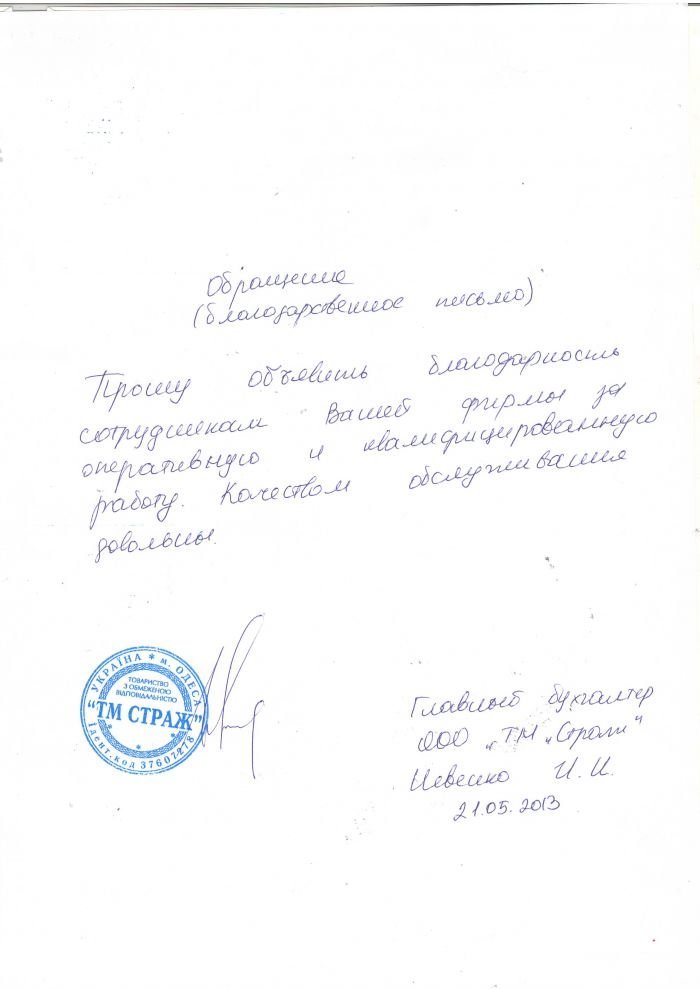 Обращение
(благодарственное письмо)
Прошу объявить благодарность
сотрудникам Вашей фирмы за
оперативную и квалифицированную
работу. Качеством обслуживания
довольны.
УКРАЇНА * м. ОДЕСА
ТОВАРИСТВО
З ОБМЕЖЕНОЮ
ВІДПОВІДАЛЬНІСТЮ
“ТМ СТРАЖ”
Ідент. код 37607278
Главный бухгалтер
ООО „ТМ „Страж“
И. И.
21.05.2013